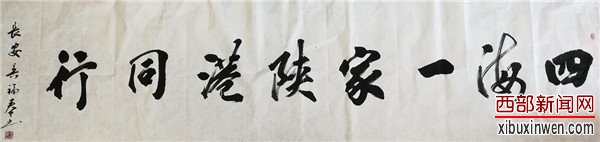 四海一家陕港同行
长安吴福春书
西部新闻网
xibuxinwen.com